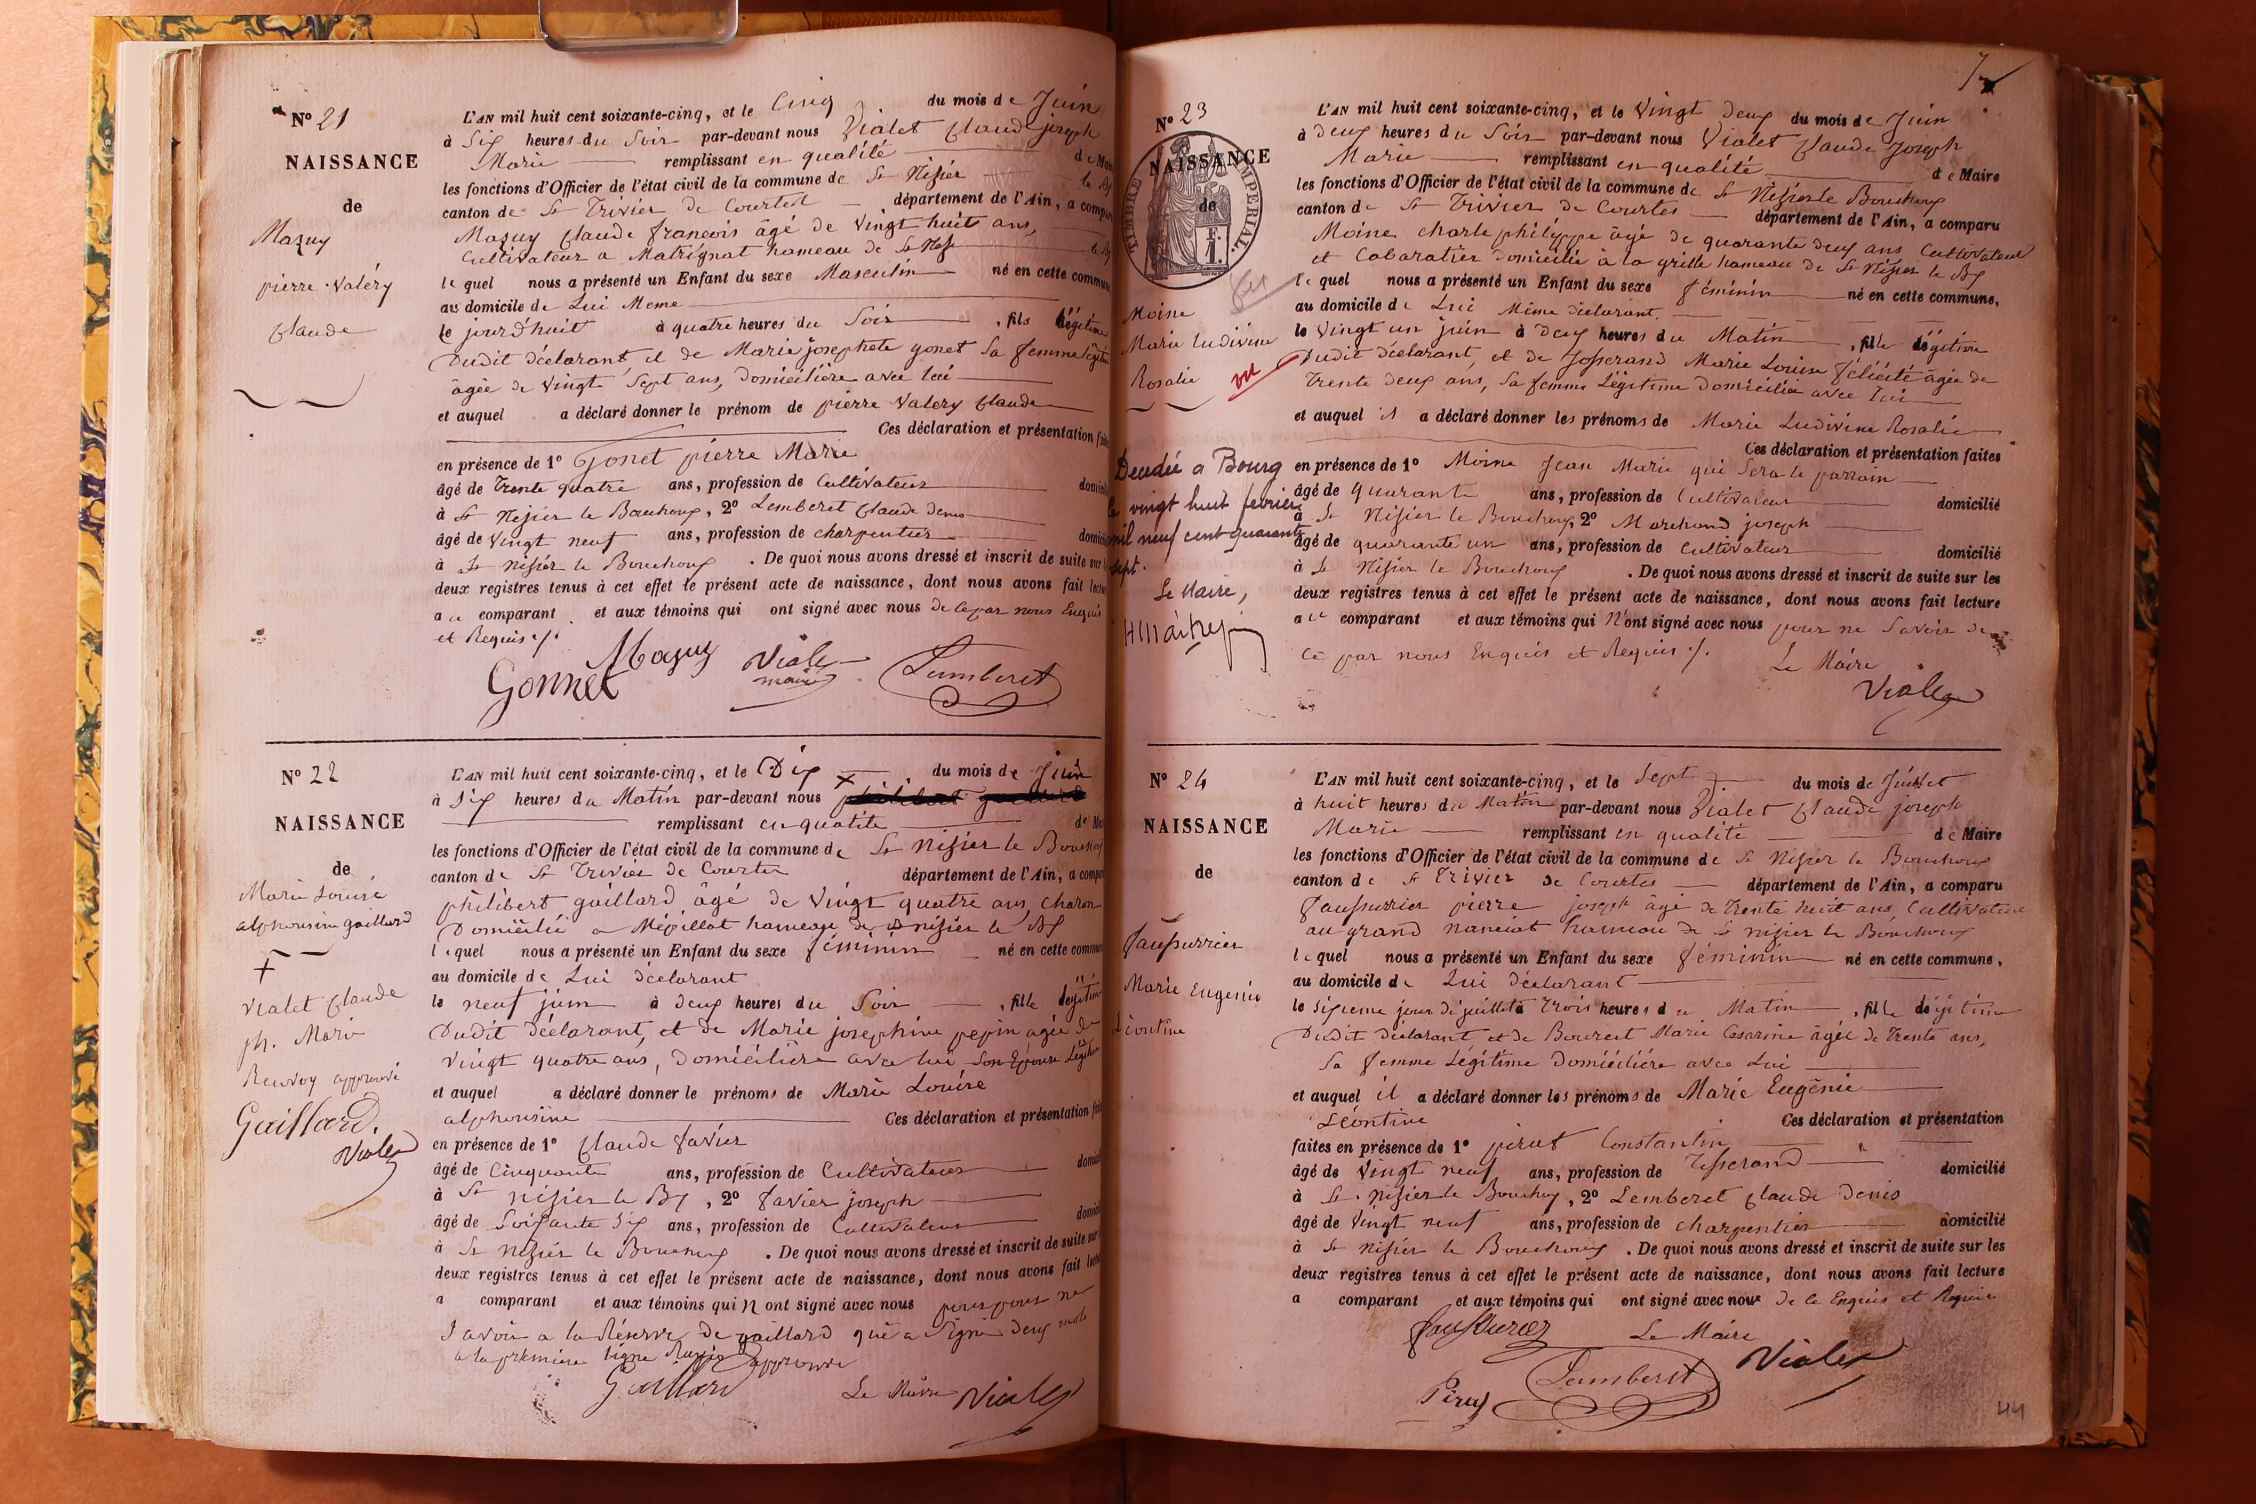 N° 21
NAISSANCE
de
Mazuy
pierre Valéry
Claude
L'AN mil huit cent soixante-cinq, et le Cinq du mois de Juin
à Six heures du Soir par-devant nous Vialet Claude joseph
Marie remplissant en qualité de
les fonctions d'Officier de l'état civil de la commune de St Nizier
canton de St Trivier de Courtes département de l'Ain, a
Mazuy Claude francois âgé de Vingt huit ans,
Cultivateur a Matrignat hameau de St
lequel nous a présenté un Enfant du sexe Masculin né en cette
au domicile de Lui Meme
le jour d'huit à quatre heures du Soir, fils légitime
Dudit déclarant et de Marie josephete gonet Sa femme
âgée de Vingt Sept ans, Domicilière avec lui
et auquel a déclaré donner le prénom de pierre Valery Claude
Ces déclaration et présentation
en présence de 1° Gonet pierre Marie
âgé de Trente quatre ans, profession de Cultivateur
à St Nizier le Bouchoux, 2° Lemberet Claude denis
âgé de Vingt neuf ans, profession de charpentier
à St Nizier le Bouchoux. De quoi nous avons dressé et inscrit de suite sur
deux registres tenus à cet effet le présent acte de naissance, dont nous avons fait
au comparant et aux témoins qui ont signé avec nous de ce par nous Enquis
et Requis ./.
Mazuy
Gonnet
Vialet
maire
Lamberet
N° 22
NAISSANCE
de
Marie Louise
alphonsine gaillard
+
Vialet Claude
jh. Marie
Renvoy approuvé
Gaillard.
Vialet
L'AN mil huit cent soixante-cinq, et le Dix du mois de Juin
à Six heures du Matin par-devant nous
remplissant en qualité de
les fonctions d'Officier de l'état civil de la commune de St Nizier le
canton de St Trivier de Courtes département de l'Ain, a
philibert gaillard âgé de Vingt quatre ans, charon
Domicilié a Mépillat hameau de St nizier le Bx
lequel nous a présenté un Enfant du sexe féminin né en cette
au domicile de Lui déclarant
le neuf juin à deux heures du Soir, fille légitime
Dudit déclarant, et de Marie josephine pepin agée de
Vingt quatre ans, Domicilière avec lui Son Epouse
et auquel a déclaré donner le prénoms de Marie Louise
alphonsine Ces déclaration et présentation
en présence de 1° Claude favier
âgé de Cinquante ans, profession de Cultivateur
à St nizier le Bx, 2° favier joseph
âgé de Soixante Six ans, profession de Cultivateur
à St Nizier le Bouchoux. De quoi nous avons dressé et inscrit de suite sur
deux registres tenus à cet effet le présent acte de naissance, dont nous avons fait
a comparant et aux témoins qui n ont signé avec nous pour ne
Savoir a la Réserve de gaillard qui a Signé deux mots
a la premiere ligne approuvé
Gaillard
Le Maire Vialet
7
N° 23
NAISSANCE
de
TIMBRE IMPERIAL.
F.
1.
Moine
Marie Ludivine
Rosalie
vu
Décédée a Bourg
le vingt huit février
mil neuf cent quarante
sept.
Le Maire,
L'AN mil huit cent soixante-cinq, et le Vingt deux du mois de Juin
à Deux heures du Soir par-devant nous Vialet Claude Joseph
Marie remplissant en qualité de Maire
les fonctions d'Officier de l'état civil de la commune de St Nizier le Bouchoux
canton de St Trivier de Courtes département de l'Ain, a comparu
Moine charle philippe âgé de quarante deux ans Cultivateur
et Cabaratier domicilié à la grille hameau de St Nizier le Bx
lequel nous a présenté un Enfant du sexe féminin né en cette commune,
au domicile de Lui Même déclarant.
le Vingt un juin à deux heures du Matin, fille légitime
Dudit déclarant, et de Josserand Marie Louise félicité âgée de
Trente deux ans, Sa femme Légitime Domiciliée avec Lui
et auquel il a déclaré donner les prénoms de Marie Ludivine Rosalie
Ces déclaration et présentation faites
en présence de 1° Moine Jean Marie qui Sera le parrain
âgé de quarante ans, profession de Cultivateur domicilié
à St Nizier le Bouchoux, 2° Marchand joseph
âgé de quarante un ans, profession de Cultivateur domicilié
à St Nizier le Bouchoux. De quoi nous avons dressé et inscrit de suite sur les
deux registres tenus à cet effet le présent acte de naissance, dont nous avons fait lecture
au comparant et aux témoins qui N'ont signé avec nous pour ne Savoir de
ce par nous Enquis et Requis ./.
Le Maire
Vialet
N° 24
NAISSANCE
de
faussurrier
Marie Eugenie
Léontine
L'AN mil huit cent soixante-cinq, et le Sept du mois de Juillet
à huit heures du Matin par-devant nous Vialet Claude joseph
Marie remplissant en qualité de Maire
les fonctions d'Officier de l'état civil de la commune de St Nizier le Bouchoux
canton de St Trivier de Courtes département de l'Ain, a comparu
faussurrier pierre joseph âgé de Trente huit ans, Cultivateur
au grand nanciat hameau de St nizier le Bouchoux
lequel nous a présenté un Enfant du sexe féminin né en cette commune,
au domicile de Lui déclarant
le Sixieme jour de juillet à Trois heures du Matin, fille légitime
Dudit déclarant et de Bourcet Marie Cesarine âgée de Trente ans,
Sa femme Légitime Domicilière avec Lui
et auquel il a déclaré donner les prénoms de Marie Eugénie
Léontine Ces déclaration et présentation
faites en présence de 1° pirat Constantin
âgé de Vingt neuf ans, profession de Tisserand domicilié
à St nizier le Bouchoux, 2° Lemberet Claude Denis
âgé de Vingt neuf ans, profession de charpentier domicilié
à St Nizier le Bouchoux. De quoi nous avons dressé et inscrit de suite sur les
deux registres tenus à cet effet le présent acte de naissance, dont nous avons fait lecture
a comparant et aux témoins qui ont signé avec nous de ce Enquis et Requis
Le Maire
Vialet
Lamberet
Pirat
44